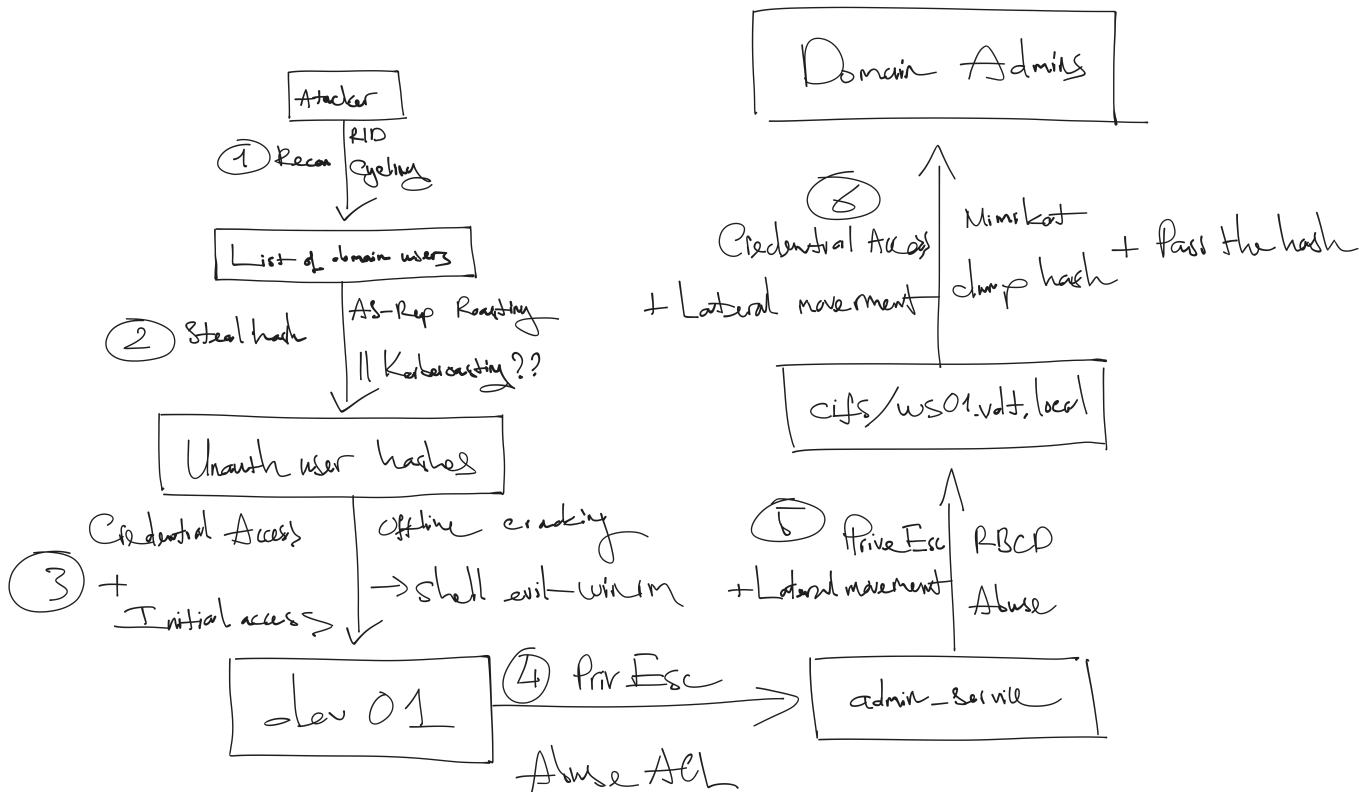 Atacker
1 Recon
RID
Cycling
List of domain users
2 Steal hash
AS-Rep Roasting
|| Kerberoasting??
Unauth user hashes
Credential Access
3 +
Initial access
Offline cracking
→ shell evil-winrm
dev 01
4 Priv Esc
Abuse ACL
admin_service
5 Prive Esc
+ Lateral movement
RBCD
Abuse
cifs/ws01.vdt.local
6
Credential Access
+ Lateral movement
Mimikat
dump hash
+ Pass the hash
Domain Admins